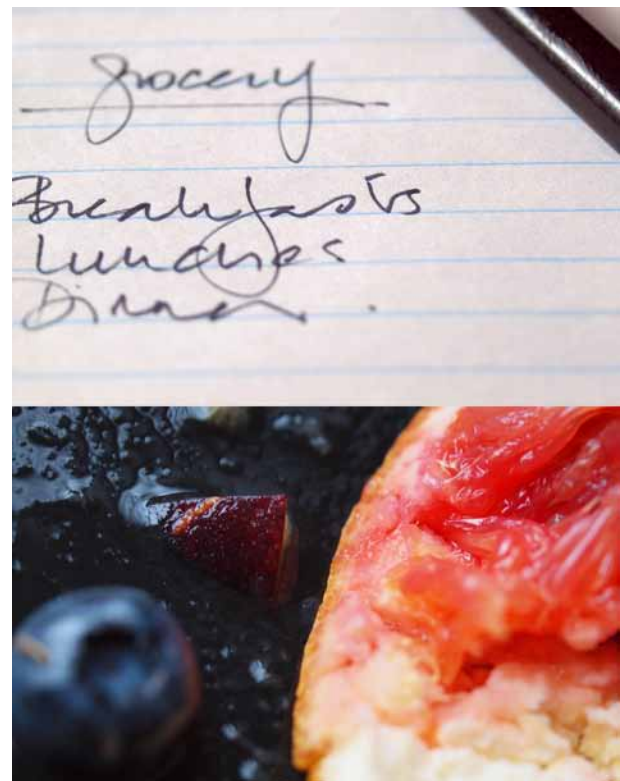 grocery
Breakfasts
Lunches
Dinner.